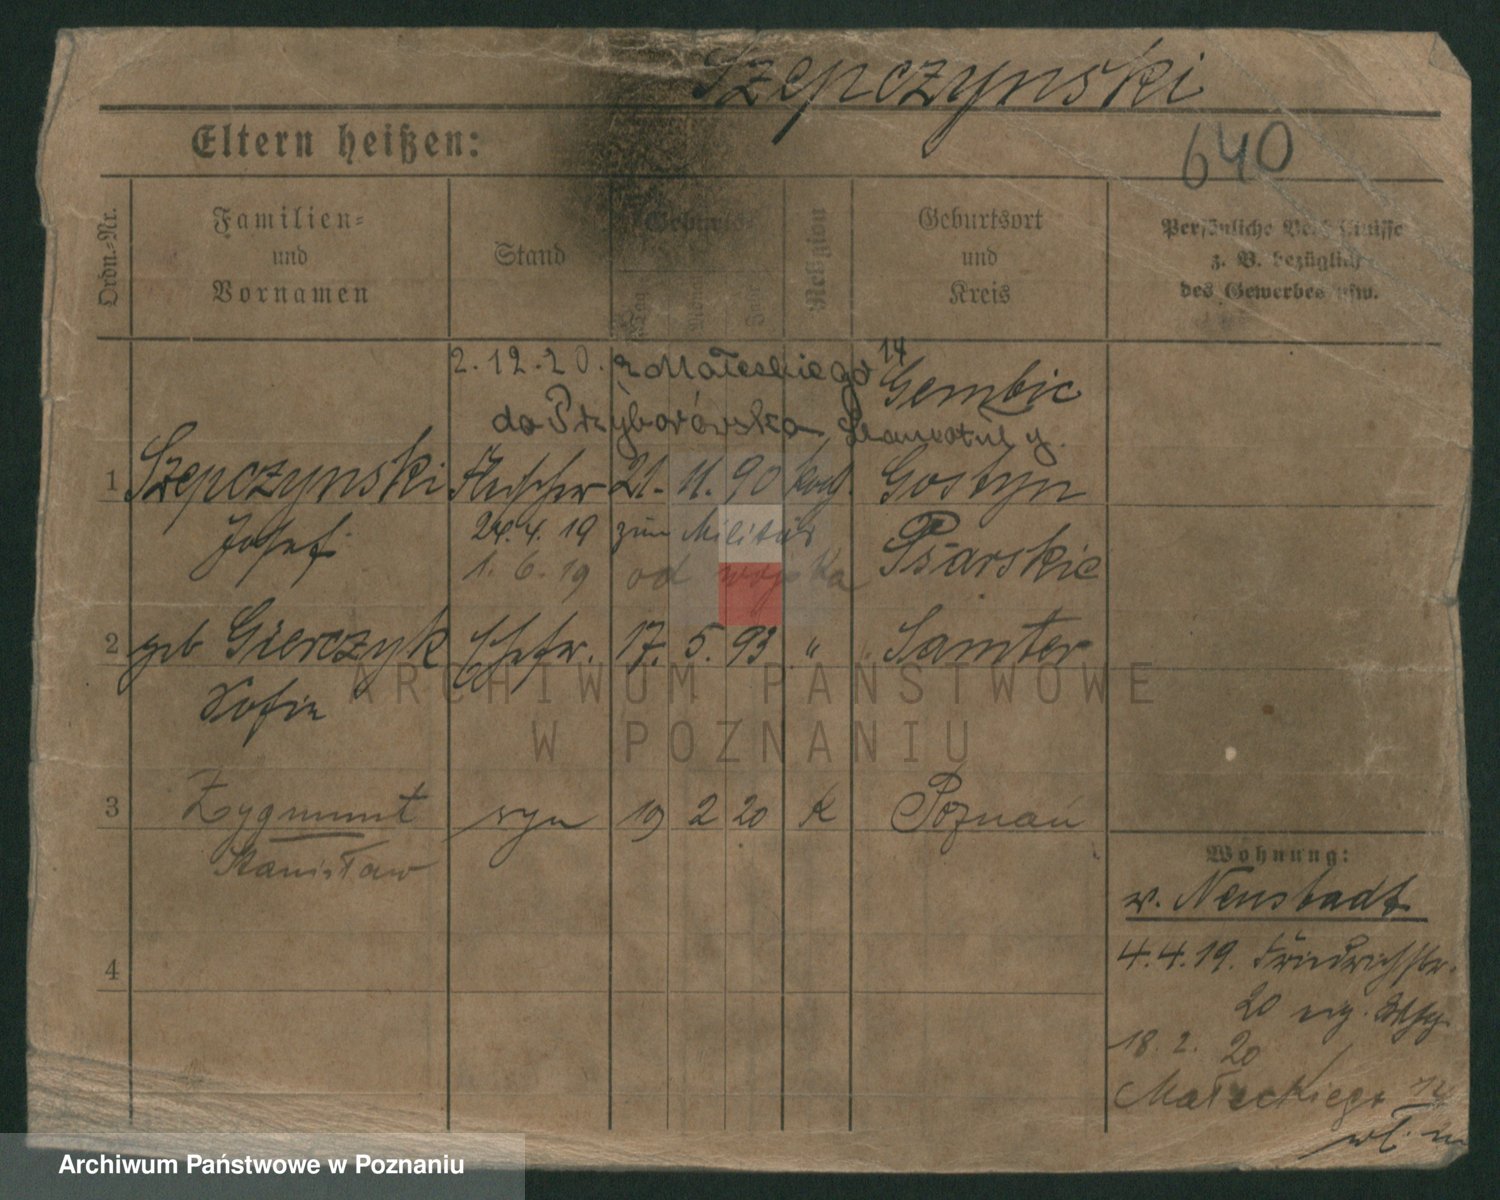 Szepczynski
640
Eltern heißen:
Ordn.-Nr.
Familien-
und
Vornamen
Stand
Geburts-
Tag
Monat
Jahr
Religion
Geburtsort
und
Kreis
Persönliche Verhältnisse
z. B. bezüglich
des Gewerbes usw.
2.12.20. z Małeckiego 14
do Przyborówska, Szamotuły.
Gembic
1 Szepczynski Fleischer 21. 11. 90 kath. Gostyn
Josef 24.4.19 zum Militär Psarskie
1.6.19 od wojska
2 geb Gierczyk Ehefr. 17. 5. 93 " Samter
Sofie
3 Zygmunt syn 19 2 20 K Poznań
Stanisław
4
Wohnung:
v. Neustadt
4.4.19. Friedrichstr.
20 eig. Whg.
18. 2. 20
Małeckiego 14
wł. m
ARCHIWUM PAŃSTWOWE
W POZNANIU
Archiwum Państwowe w Poznaniu